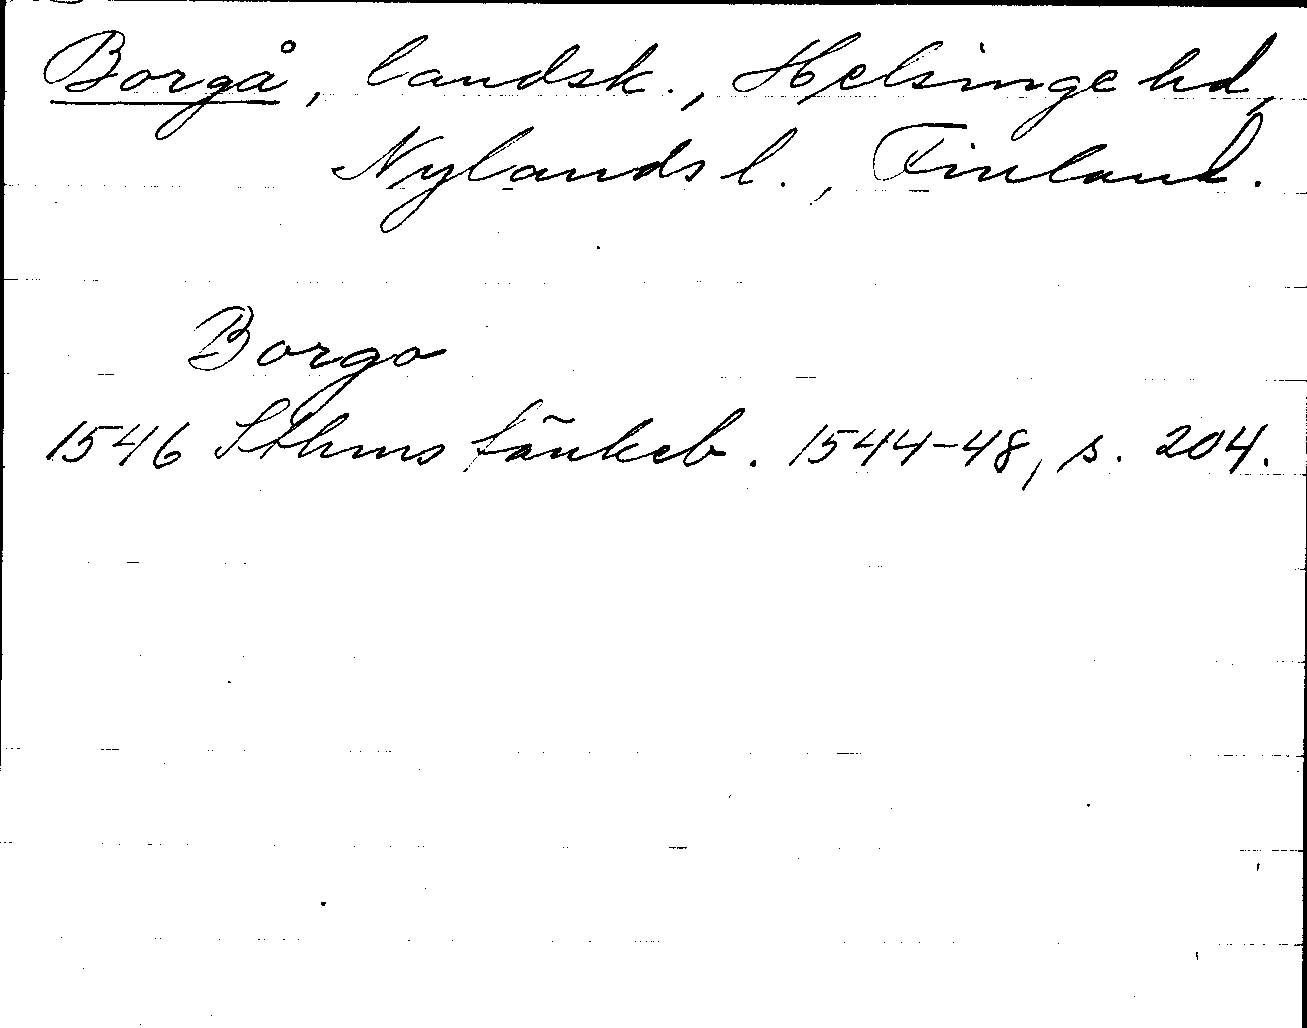 Borgå, landsk., Helsinge hd,
Nylands l., Finland.
Borgo
1546 Sthms tänkeb. 1544-48, s. 204.